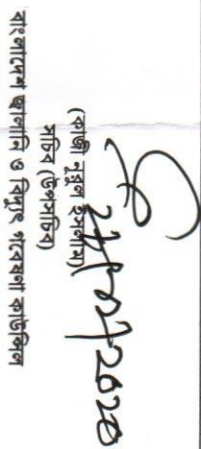 (কাজী নুরুল ইসলাম)
সচিব (উপসচিব)
বাংলাদেশ জ্বালানি ও বিদ্যুৎ গবেষণা কাউন্সিল